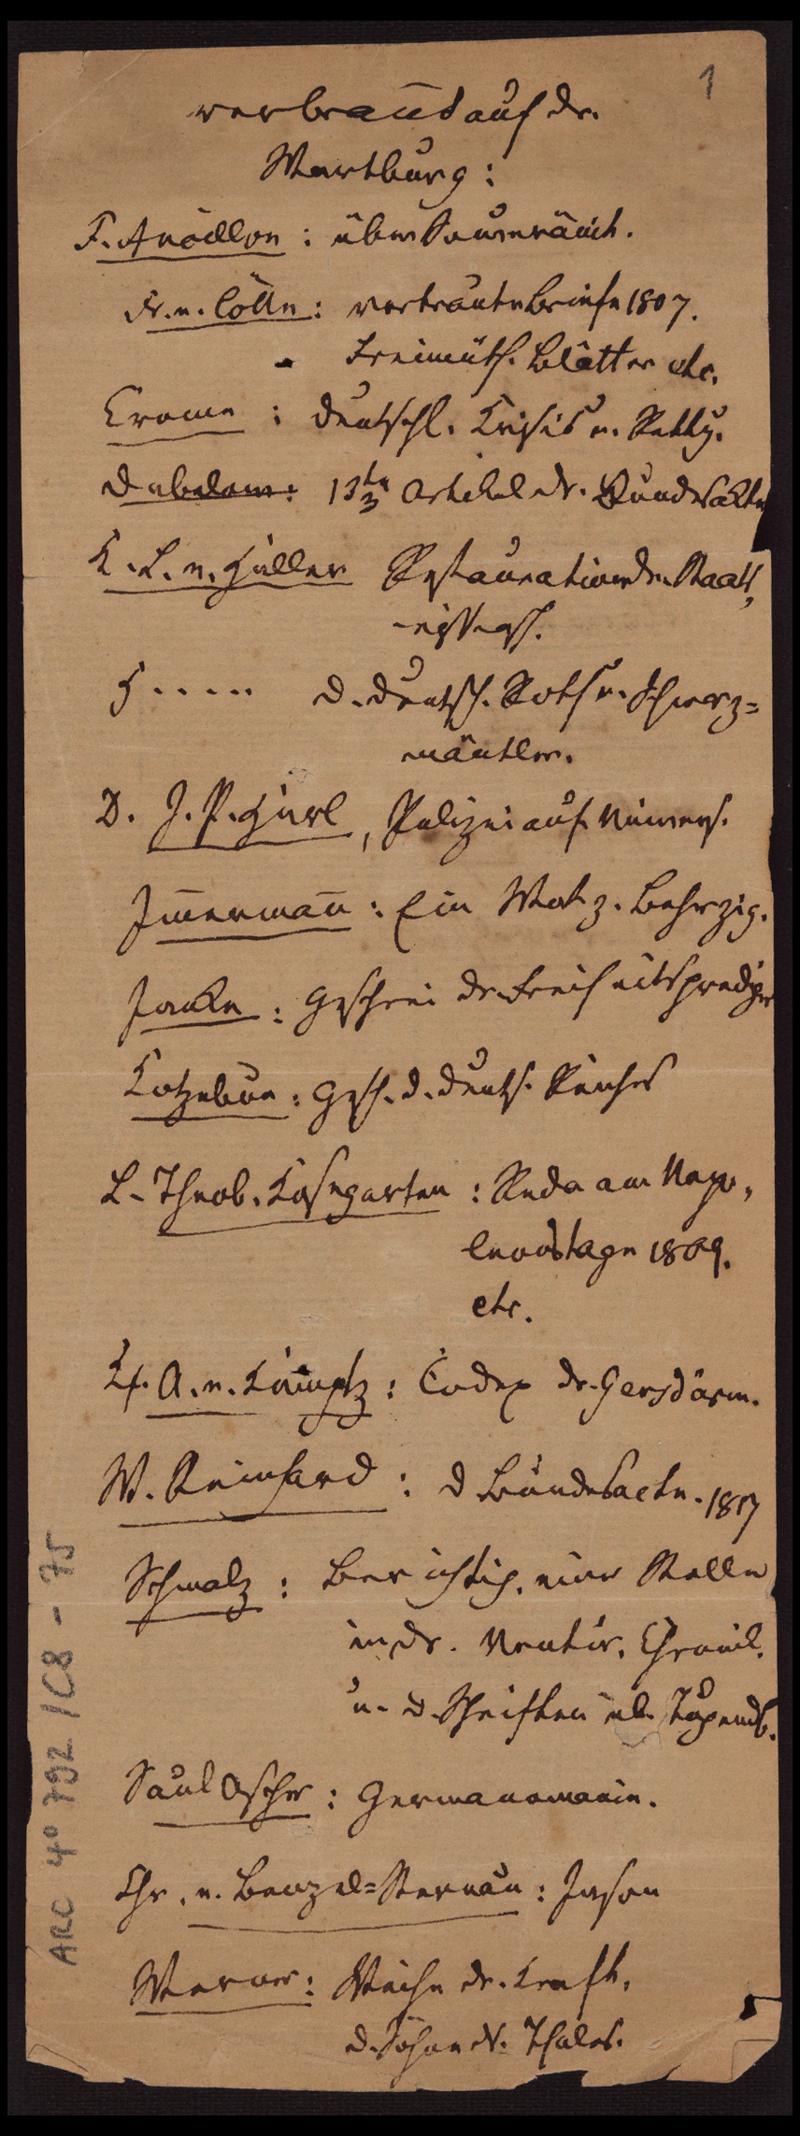 1
verbrannt auf dr.
Wartburg:
F. Ancillon: über Souveränit.
Fr. v. Cölln: vertraute Briefe 1807.
Freimüth. Blätter etc.
Crome: Deutschl. Krisis u. Rettg.
Dabelow: 13te Artikel dr. Bundesakte
K. L. v. Haller Restauration dr. Staats,
wissensch.
H ..... d. deutsch. Roth u. Schwarz=
mäntler.
D. J. P. Harl, Polizei auf Univers.
Im̅erman̅: Ein Wort z. Beherzig.
Jarke: Geschrei dr. Freiheitsprediger
Kotzebue: Gesch. d. deutsch. Reiches
L. Theob. Kosegarten: Rede am Napo,
leonstage 1809.
etc.
K. A. v. Kamptz: Codex dr. Gensdarm.
W. Reinhard: d Bundesacte. 1817
Schmalz: Berichtig. einer Stelle
in dr. Venturin. Chronik.
u. d. Schriften üb. Tugendb.
Saul Ascher: Germanomanie.
Chr. v. Benzel=Sternau: Jason
Werner: Weihe dr. Kraft.
d. Söhne dr. Thales.
ARC 4° 792 / C8 - 75